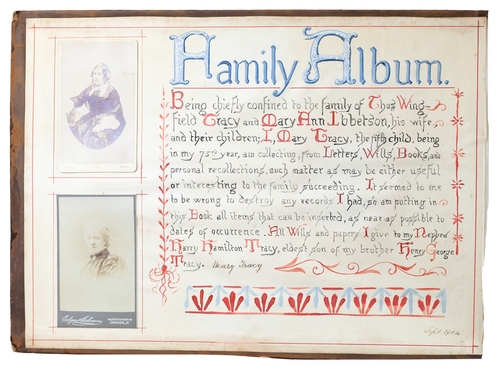 Family Album.
Being chiefly confined to the family of Thos Wing-
field Tracy and Mary Ann Ibbetson, his wife
and their children; I, Mary Tracy, the fifth child, being
in my 75th year, am collecting, from Letters, Wills, Books, and
personal recollections, such matter as may be either useful
or interesting to the family succeeding. It seemed to me
to be wrong to destroy any records I had, so am putting in
this Book all items that can be inserted, as near as possible to
dates of occurrence. All Wills and papers I give to my Nephew
Harry Hamilton Tracy, eldest son of my brother Henry George
Tracy. Henry Tracy
Sept.